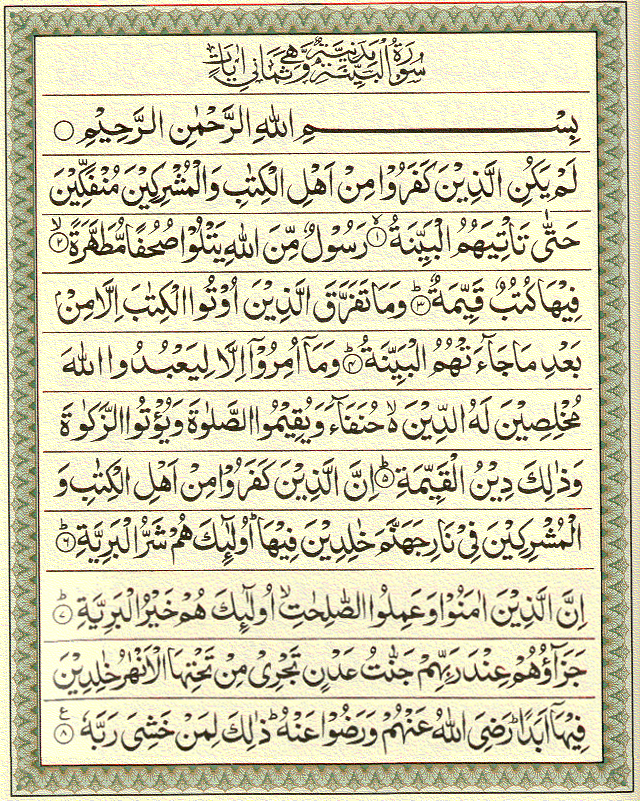 سُوْرَةُ الْبَيِّنَةِ مَدَنِيَّةٌ وَّهِيَ ثَمَانِيْ اٰيَاتٍ
بِسْــــــمِ اللهِ الرَّحْمٰنِ الرَّحِيْمِ ○
لَمْ يَكُنِ الَّذِيْنَ كَفَرُوْا مِنْ اَهْلِ الْكِتٰبِ وَالْمُشْرِكِيْنَ مُنْفَكِّيْنَ
حَتّٰى تَاْتِيَهُمُ الْبَيِّنَةُ ۙ۱ رَسُوْلٌ مِّنَ اللهِ يَتْلُوْا صُحُفًا مُّطَهَّرَةً ۙ۲
فِيْهَا كُتُبٌ قَيِّمَةٌ ؕ۳ وَمَا تَفَرَّقَ الَّذِيْنَ اُوْتُوا الْكِتٰبَ اِلَّا مِنْۢ
بَعْدِ مَا جَآءَتْهُمُ الْبَيِّنَةُ ؕ۴ وَمَاۤ اُمِرُوْۤا اِلَّا لِيَعْبُدُوا اللهَ
مُخْلِصِيْنَ لَهُ الدِّيْنَ ۙ۬ حُنَفَآءَ وَيُقِيْمُوا الصَّلٰوةَ وَيُؤْتُوا الزَّكٰوةَ
وَذٰلِكَ دِيْنُ الْقَيِّمَةِ ؕ۵ اِنَّ الَّذِيْنَ كَفَرُوْا مِنْ اَهْلِ الْكِتٰبِ وَ
الْمُشْرِكِيْنَ فِيْ نَارِ جَهَنَّمَ خٰلِدِيْنَ فِيْهَا ؕ اُولٰٓئِكَ هُمْ شَرُّ الْبَرِيَّةِ ؕ۶
اِنَّ الَّذِيْنَ اٰمَنُوْا وَعَمِلُوا الصّٰلِحٰتِ ۙ اُولٰٓئِكَ هُمْ خَيْرُ الْبَرِيَّةِ ؕ۷
جَزَآؤُهُمْ عِنْدَ رَبِّهِمْ جَنّٰتُ عَدْنٍ تَجْرِيْ مِنْ تَحْتِهَا الْاَنْهٰرُ خٰلِدِيْنَ
فِيْهَاۤ اَبَدًا ؕ رَضِيَ اللهُ عَنْهُمْ وَرَضُوْا عَنْهُ ؕ ذٰلِكَ لِمَنْ خَشِيَ رَبَّهٗ ۸ ع